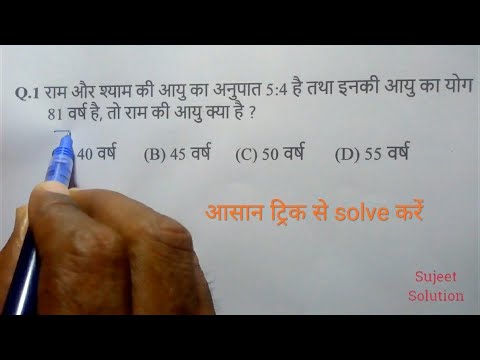 Q.1 राम और श्याम की आयु का अनुपात 5:4 है तथा इनकी आयु का योग
81 वर्ष है, तो राम की आयु क्या है ?
40 वर्ष (B) 45 वर्ष (C) 50 वर्ष (D) 55 वर्ष
आसान ट्रिक से solve करें
Sujeet
Solution